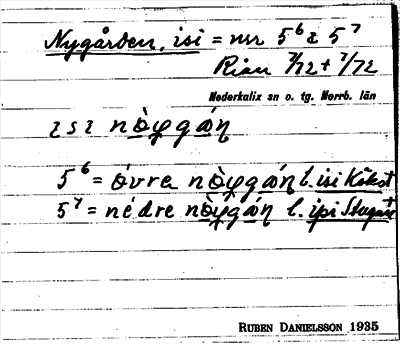 Nygården, isi = nr 5⁶ a 5⁷
Rian 7/72 + 1/72
Nederkalix sn o. tg. Norrb. län
ɪsɪ nòɣgáŋ
5⁶ = óvra nòɣgáŋ l. isi Kåkot
5⁷ = nédre nòɣgáŋ l. ipi
RUBEN DANIELSSON 1935